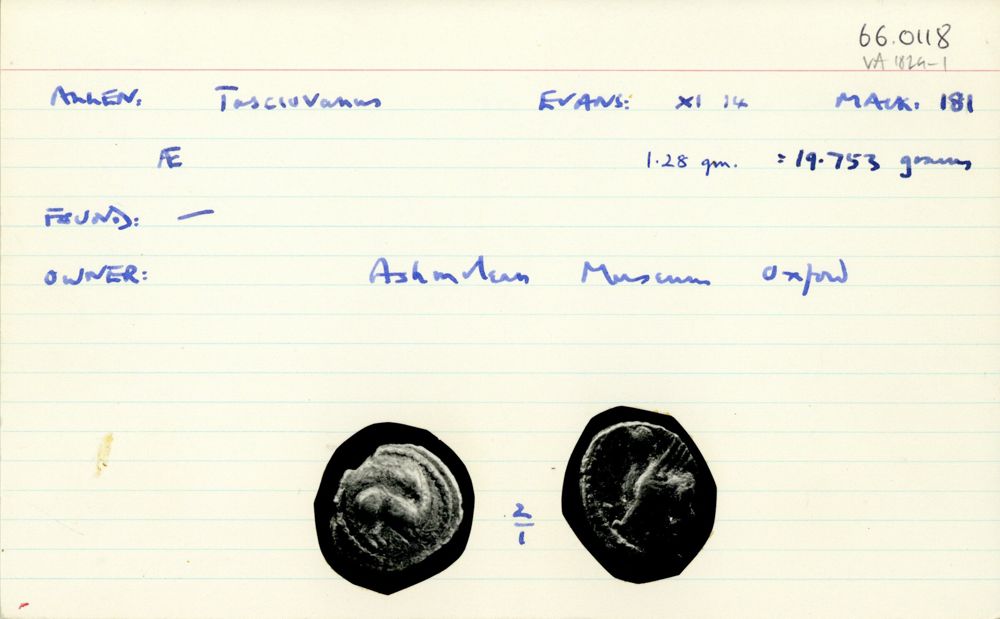 66.0118
VA 1824-1
ALLEN: Tasciovanus EVANS: XI 14 MACK. 181
Æ 1.28 gm. = 19.753 grains
FOUND: —
OWNER: Ashmolean Museum Oxford
2/1